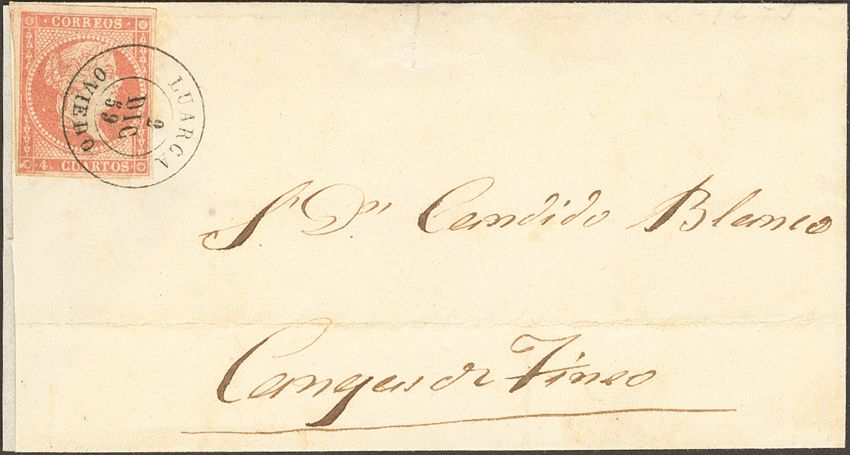 CORREOS
4. CUARTOS.
LUARCA
2
DIC
59
OVIEDO
Sr. Dn. Candido Blanco
Cangas de Tineo